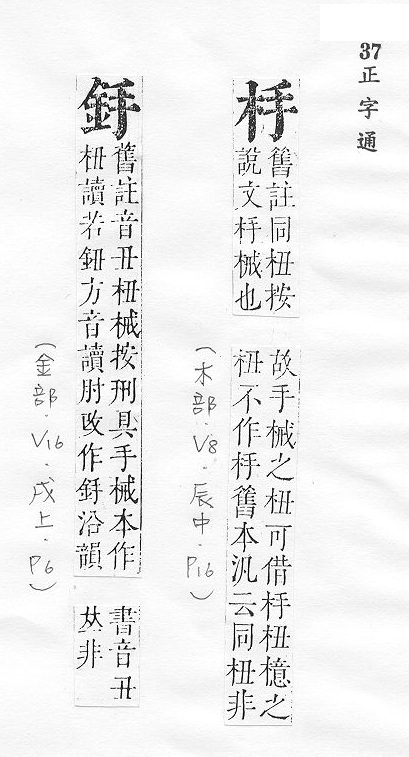 37正字通
杽
舊註同杻按
說文杽械也
故手械之杻可借杽杻檍之
杻不作杽舊本汎云同杻非
(木部.V8.辰中.P16)
舊註音丑杻械按刑具手械本作
杻讀若鈕方音讀肘改作沿韻
書音丑
丛非
(金部.V16.戌上.P6)